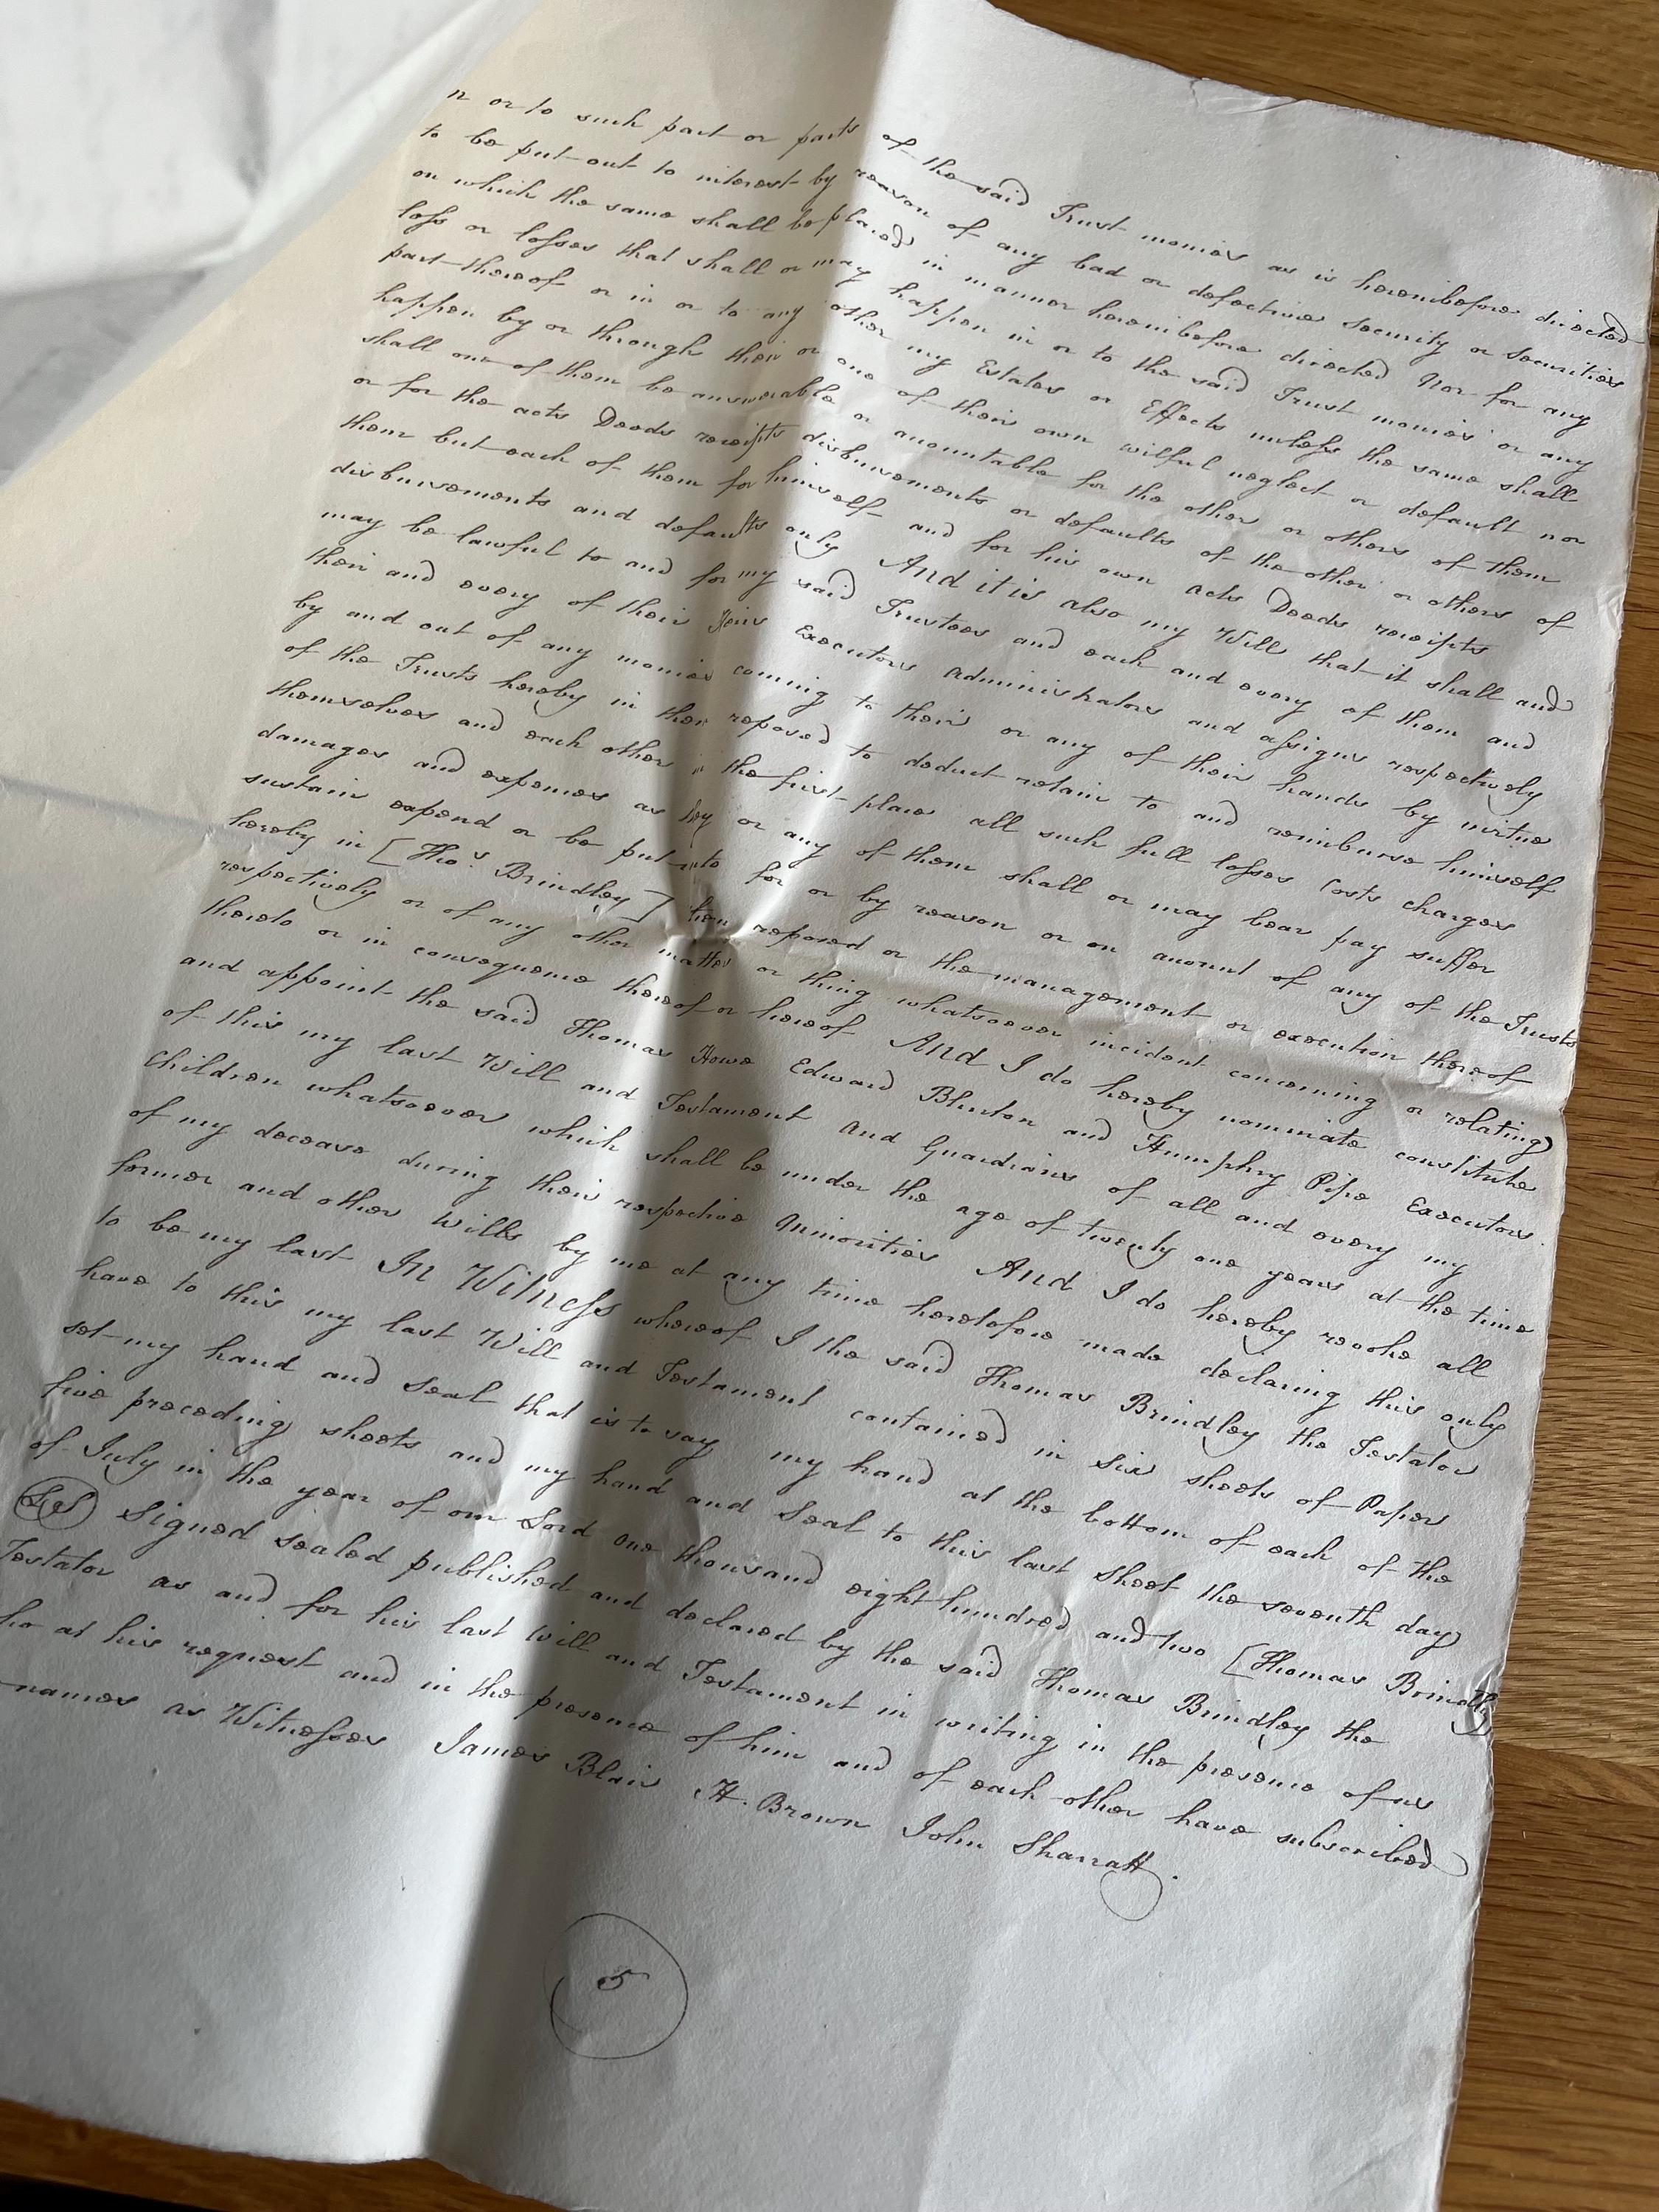 n or to such part or parts of the said Trust monies as is hereinbefore directed
to be put out to interest by reason of any bad or defective Security or Securities
on which the same shall be placed in manner hereinbefore directed Nor for any
loss or losses that shall or may happen in or to the said Trust monies or any
part thereof or in or to any other my Estates or Effects unless the same shall
happen by or through their or one of their own wilful neglect or default nor
shall one of them be answerable or accountable for the other or others of them
or for the acts Deeds receipts disbursements or defaults of the other or others of
them but each of them for himself and for his own acts Deeds receipts
disbursements and defaults only And it is also my Will that it shall and
may be lawful to and for my said Trustees and each and every of them and
their and every of their Heirs Executors Administrators and assigns respectively
by and out of any monies coming to their or any of their hands by virtue
of the Trusts hereby in them reposed to deduct retain to and reimburse himself
themselves and each other in the first place all such full losses Costs charges
damages and expences as they or any of them shall or may bear pay suffer
sustain expend or be put unto for or by reason or on account of any of the Trusts
hereby in [Thos. Brindley] them reposed or the management or execution thereof
respectively or of any other matter or thing whatsoever incident concerning or relating
thereto or in consequence thereof or hereof And I do hereby nominate constitute
and appoint the said Thomas Howe Edward Blunton and Humphry Pipe Executors
of this my last Will and Testament And Guardians of all and every my
Children whatsoever which shall be under the age of twenty one years at the time
of my decease during their respective Minorities And I do hereby revoke all
former and other Wills by me at any time heretofore made declaring this only
to be my last In Witness whereof I the said Thomas Brindley the Testator
have to this my last Will and Testament contained in Six sheets of Paper
set my hand and Seal that is to say my hand at the bottom of each of the
five preceding sheets and my hand and Seal to this last Sheet the seventh day
of July in the year of our Lord One thousand eight hundred and two [Thomas Brindley
LS Signed sealed published and declared by the said Thomas Brindley the
Testator as and for his last Will and Testament in writing in the presence of us
ho at his request and in the presence of him and of each other have subscribed
names as Witnesses James Blair H. Brown John Sharratt.
5